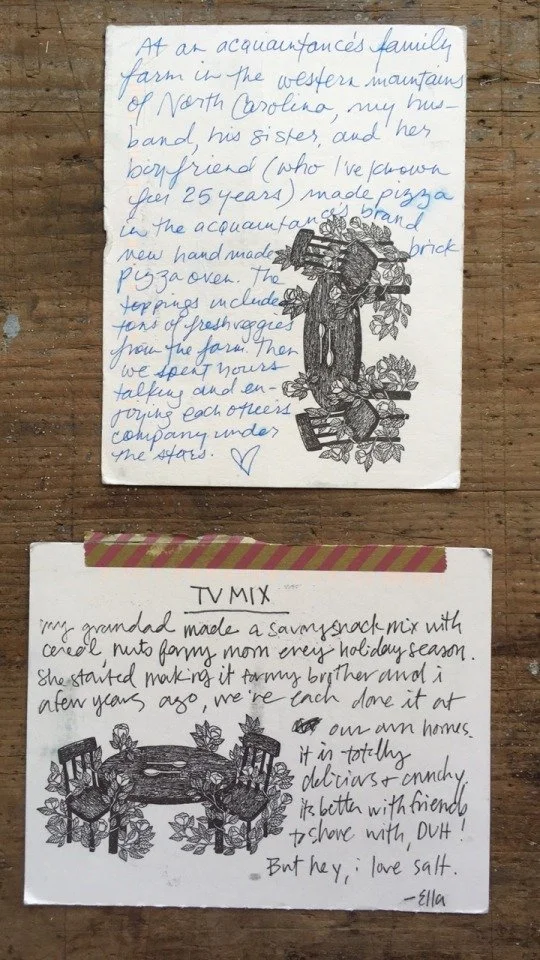 At an acquaintance's family
farm in the western mountains
of North Carolina, my hus-
band, his sister, and her
boyfriend (who I've known
for 25 years) made pizza
in the acquaintance's brand
new handmade brick
pizza oven. The
toppings included
tons of fresh veggies
from the farm. Then
we spent hours
talking and en-
joying each others
company under
the stars. ♡
TV MIX
my grandad made a savory snack mix with
cereal, nuts for my mom every holiday season.
She started making it for my brother and i
a few years ago, we're each done it at
our own homes.
it is totally
delicious + crunchy,
its better with friends
to share with, DUH!
But hey, i love salt.
-Ella